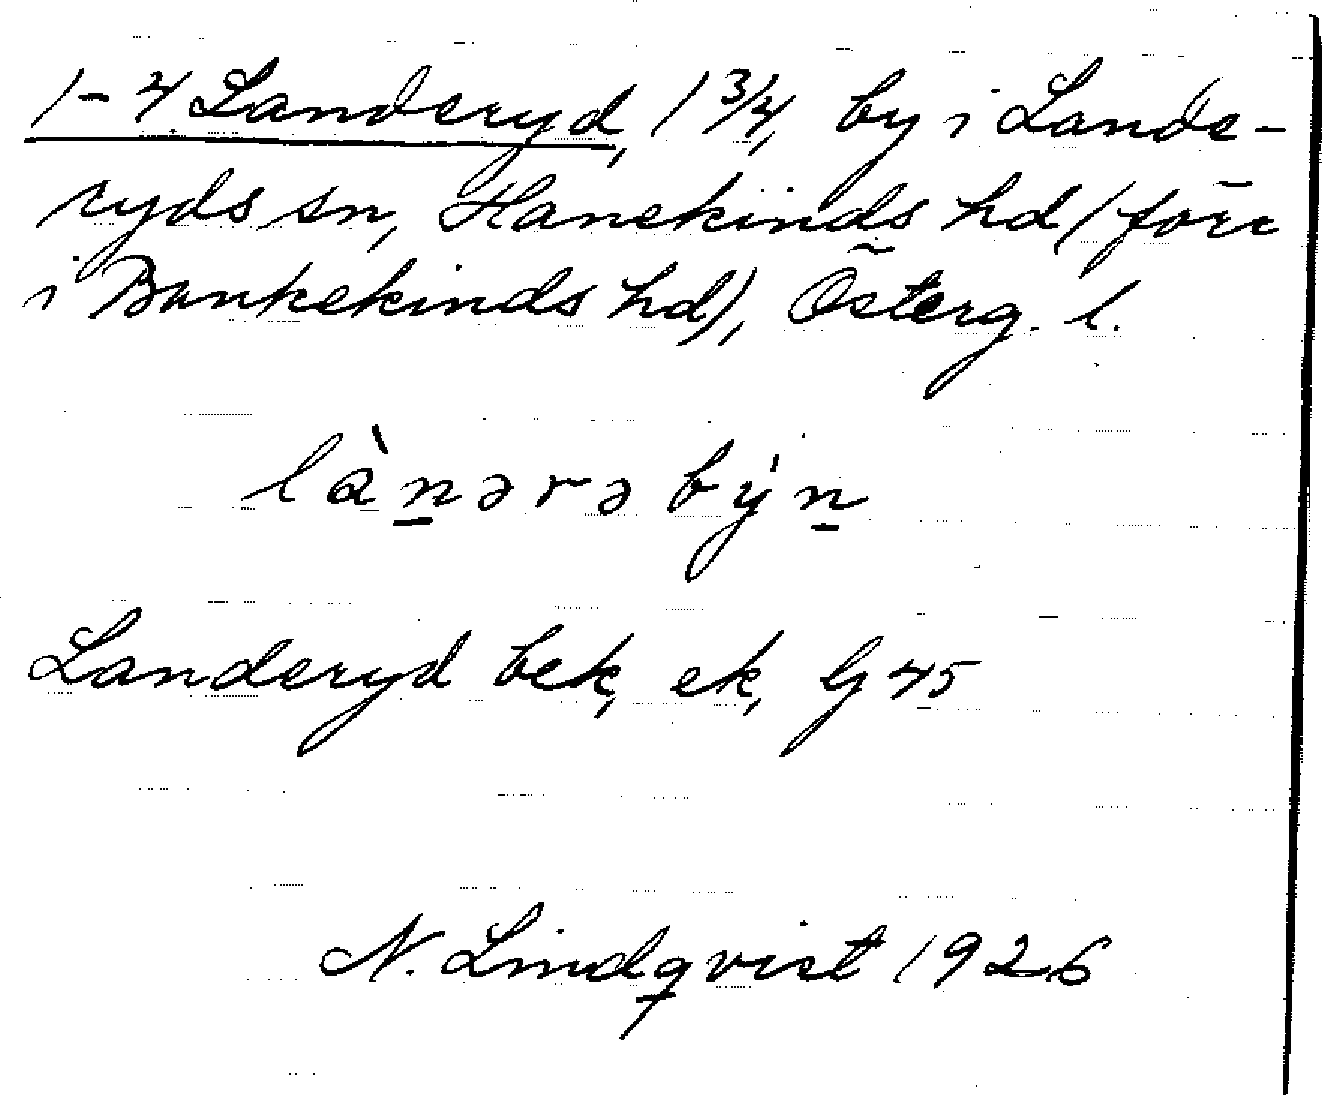 1-4 Landeryd, 1 3/4, by i Lande-
ryds sn, Hanekinds hd (förr
i Bankekinds hd), Österg. l.
lànərə býn
Landeryd bek, ek, G 45
N. Lindqvist 1926